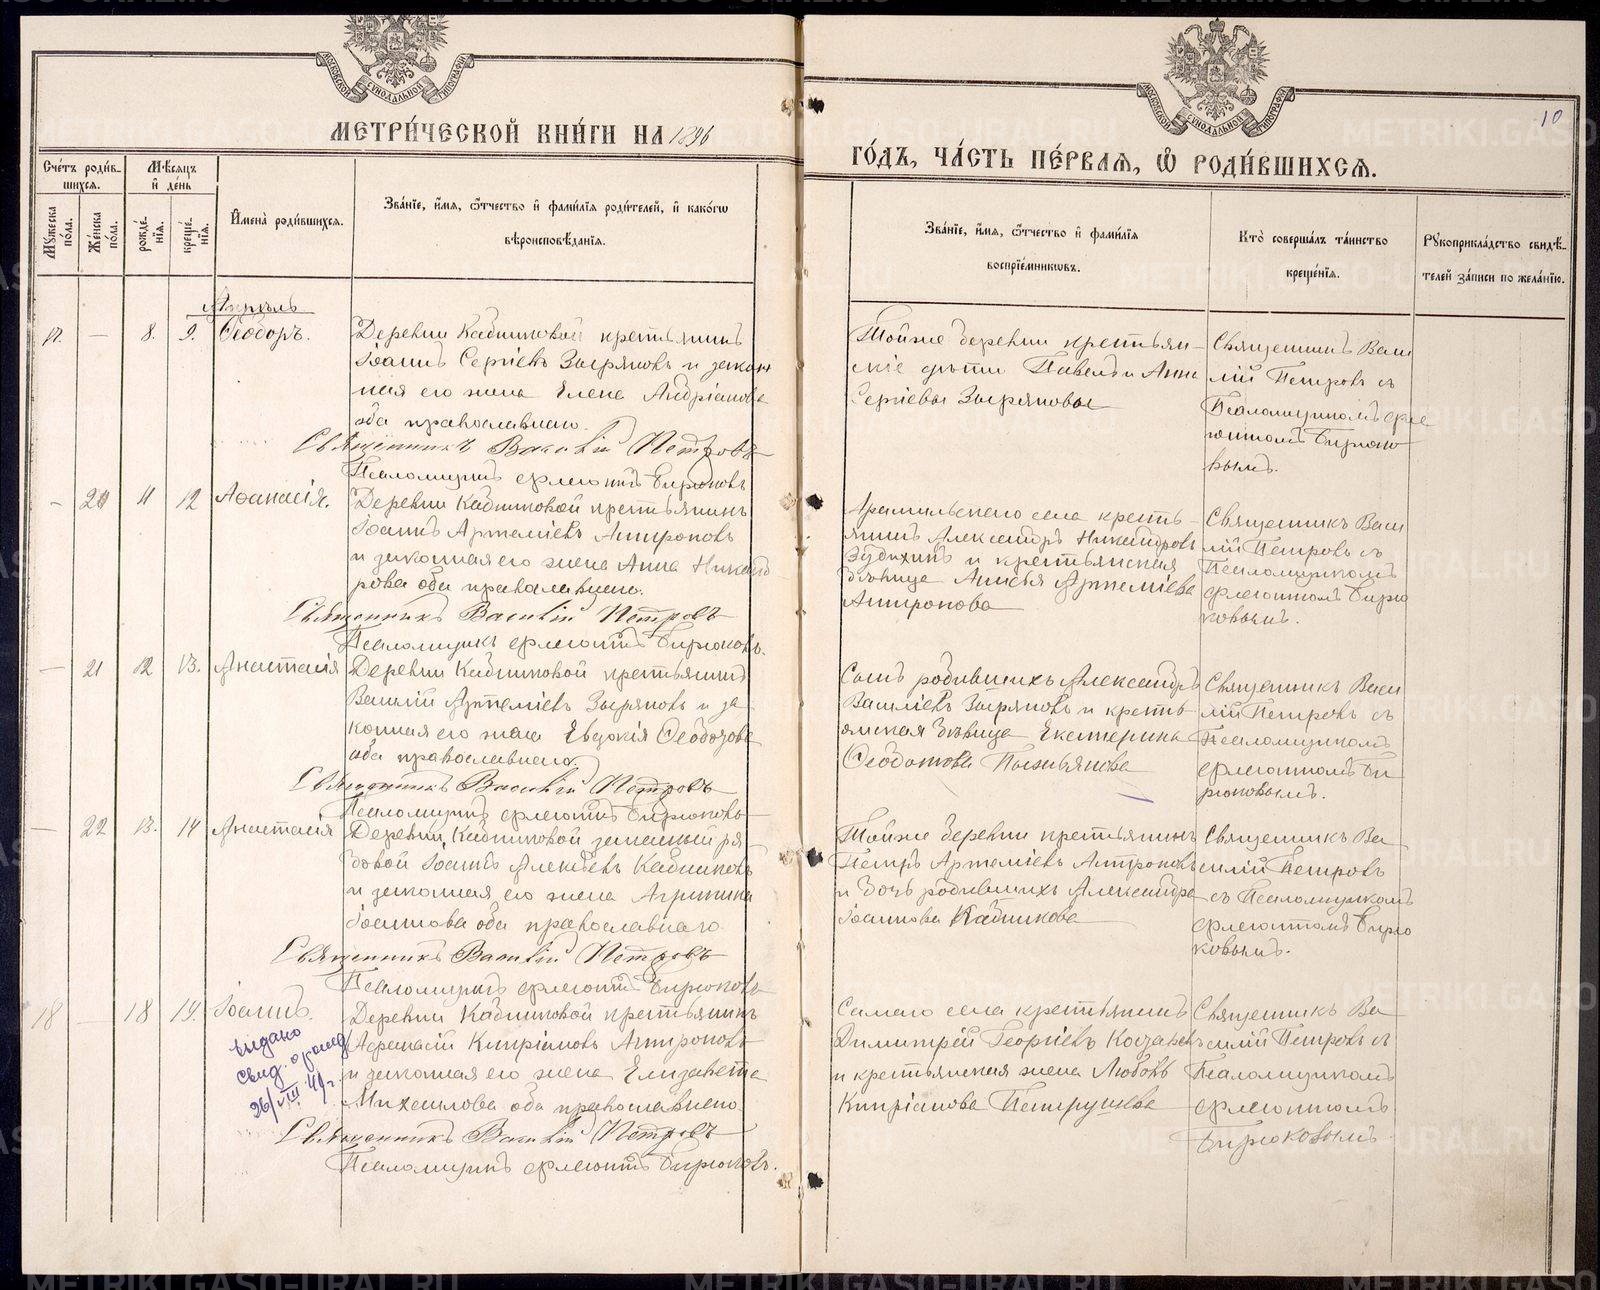 МЕТРИ́ЧЕСКОЙ КНИ́ГИ НА 1896
ГО́ДЪ, ЧА́СТЬ ПЕ́РВАѦ, Ѡ҆ РОДИ́ВШИХСѦ.
10
Сче́тъ роди́в-
шихсѧ.
Мѣ́сѧцъ
и҆ де́нь
Мꙋ́жеска по́ла.
Же́нска по́ла.
рожде́-
нїѧ.
креще́-
нїѧ.
И҆мена̀ роди́вшихсѧ.
Зва́нїе, и҆́мѧ, ѻ҆́тчество и҆ фами́лїѧ роди́телей, и҆ како́гѡ
вѣроисповѣ́данїѧ.
Зва́нїе, и҆́мѧ, ѻ҆́тчество и҆ фами́лїѧ
воспрїе́мникѡвъ.
Кто̀ соверша́лъ та́инство
креще́нїѧ.
Рꙋкоприкла́дство свидѣ́-
телей за́писи по жела́нїю.
Апрѣль
17. — 8. 9. Ѳеодоръ.
Деревни Кадниковой крестьянинъ
Іоаннъ Сергіевъ Зыряновъ и закон
ная его жена Елена Андріанова
оба православнаго.
Священникъ Василій Петровъ
Псаломщикъ Бирюковъ
Тойже деревни крестьян-
скіе дѣти Павелъ и Анна
Сергіевы Зыряновы
Священникъ Васи
лій Петровъ съ
Псаломщикомъ
Бирюко
вымъ.
— 20 11 12 Аѳанасія.
Деревни Кадниковой крестьянинъ
Іоаннъ Артеміевъ Антроповъ
и законная его жена Анна Никанд
рова оба православнаго.
Священникъ Василій Петровъ
Псаломщикъ Бирюковъ.
Арамильскаго села кресть-
янинъ Александръ Никандровъ
Зудихинъ и крестьянская
дѣвица Анисья Артеміева
Антропова
Священникъ Васи
лій Петровъ съ
Псаломщикомъ
Бирю
ковымъ.
— 21 12 13. Анастасія
Деревни Кадниковой крестьянинъ
Василій Артеміевъ Зыряновъ и за
конная его жена Евдокія Ѳеодорова
оба православнаго.
Священникъ Василій Петровъ
Псаломщикъ Бирюковъ
Сынъ родившихъ Александръ
Василіевъ Зыряновъ и кресть-
янская дѣвица Екатерина
Ѳеодотова
Священникъ Васи
лій Петровъ съ
Псаломщикомъ
Би
рюковымъ.
— 22 13. 14 Анастасія
Деревни Кадниковой запасный ря
довой Іоаннъ Алексѣевъ Кадниковъ
и законная его жена Агрипина
Іоаннова оба православнаго
Священникъ Василій Петровъ
Псаломщикъ Бирюковъ
Тойже деревни крестьянинъ
Петръ Артеміевъ Антроповъ
и дочь родившихъ Александра
Іоаннова Кадникова
Священникъ Ва
силій Петровъ
съ Псаломщикомъ
Бирю
ковымъ.
18 — 18 19. Іоаннъ.
выдано
свид. о рожд
26/VIII 41 г.
Деревни Кадниковой крестьянинъ
Аѳанасій Кипріановъ Антроповъ
и законная его жена Елизавета
Михаилова оба православнаго
Священникъ Василій Петровъ
Псаломщикъ Бирюковъ.
Самаго села крестьянинъ
Димитрей Георгіевъ
и крестьянская жена Любовь
Кипріанова Петрушева
Священникъ Ва
силій Петровъ съ
Псаломщикомъ
Бирюковымъ